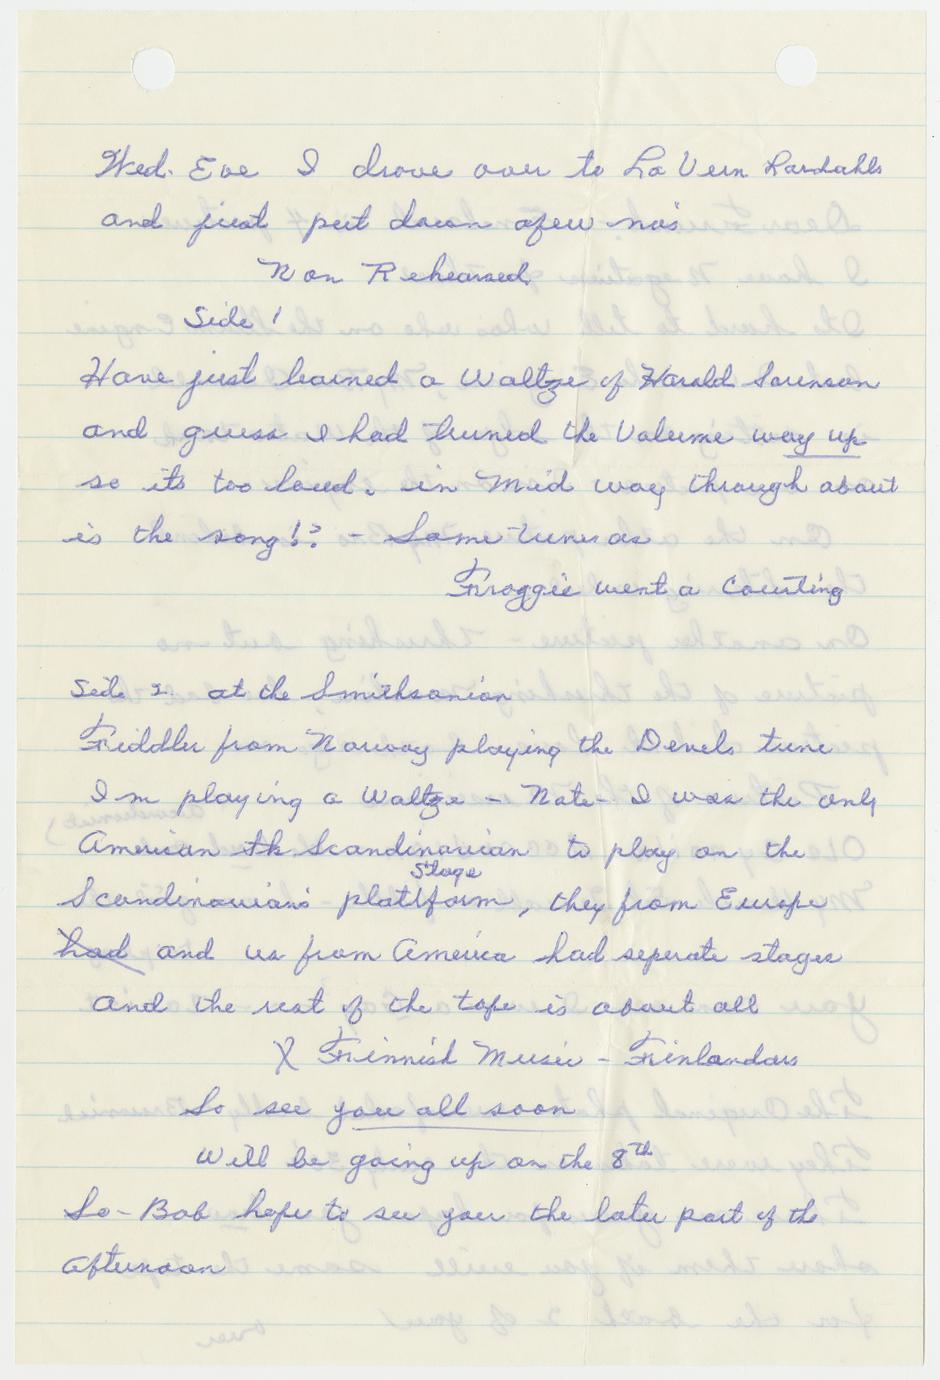 Wed. Eve I drove over to La Vern Rardahls
and just put down afew no's
Non Rehearsed
Side 1
Have just learned a Waltze of Harald Sorenson
and guess I had turned the Volume way up
so its too loud. in Mid way through about
is the song!? - Same tune as
Froggie went a Courting
Side 2. at the Smithsonian
Fiddler from Norway playing the Devels tune
Im playing a Waltze - Note - I was the only
American Scandinavian to play on the
Stage
Scandinavians platform, they from Europe
had and us from America had seperate stages
and the rest of the tape is about all
X Finnish Music - Finlanders
So see you all soon
Will be going up on the 8th
So - Bob hope to see you the later part of the
afternoon